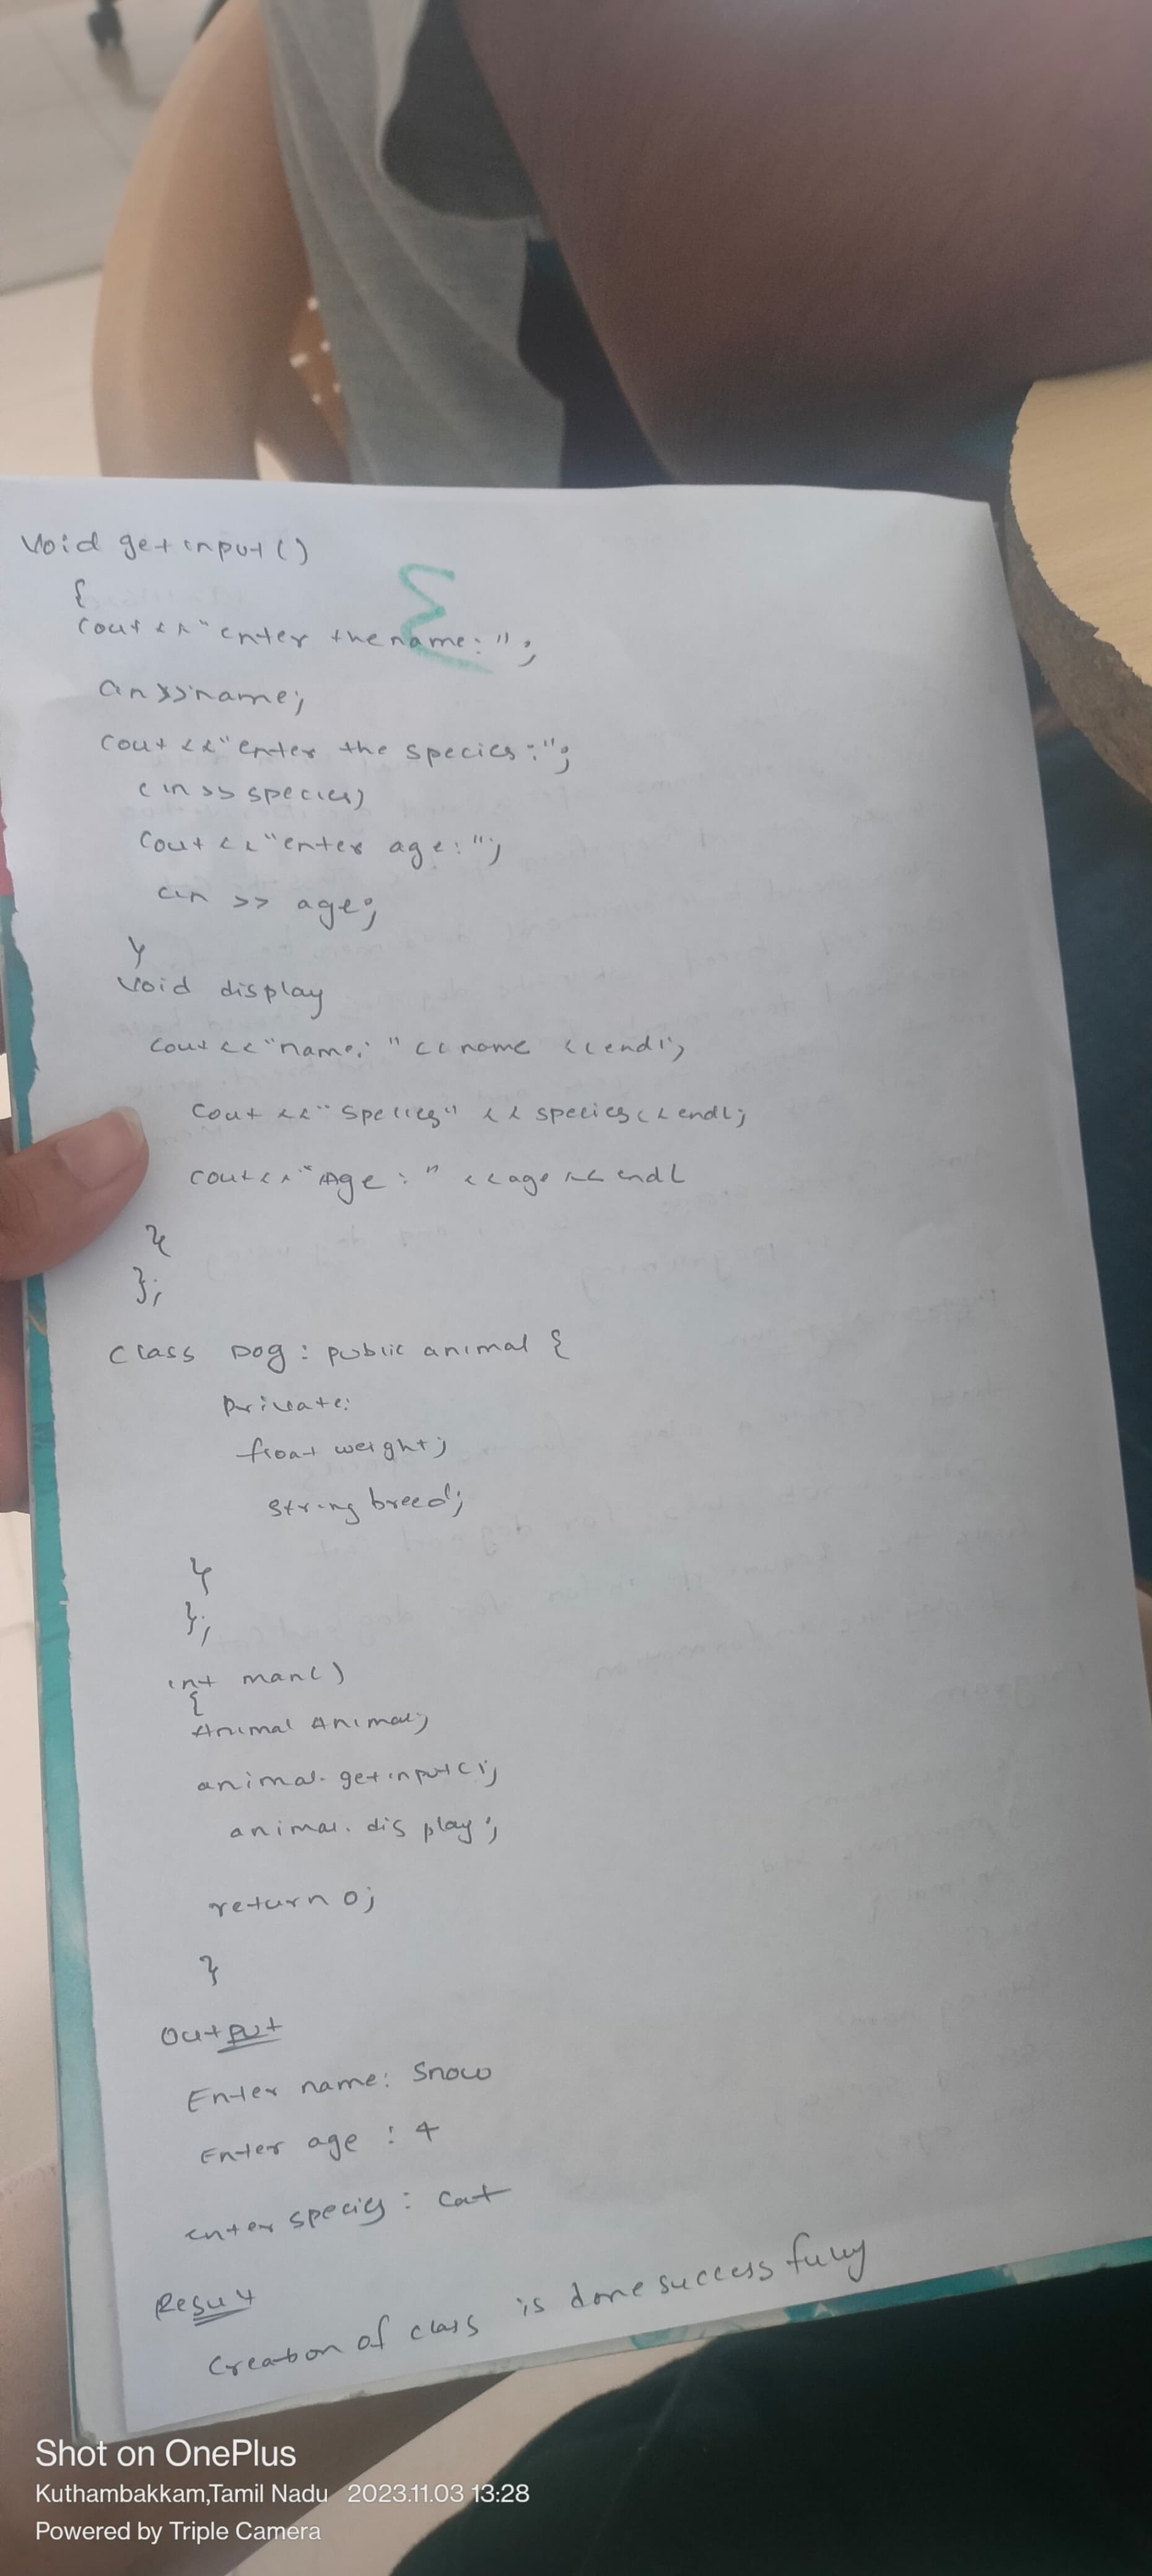 void getinput()
{
cout << "enter the name:";
cin >> name;
cout << "enter the species:";
cin >> species;
cout << "enter age:";
cin >> age;
}
void display
cout << "name:" << name << endl;
cout << "species" << species << endl;
cout << "Age:" << age << endl
}
};
class Dog : public animal {
Private:
float weight;
string breed;
}
};
int man()
{
Animal Animal;
animal.getinput();
animal.display;
return 0;
}
Output
Enter name: Snow
Enter age : 4
enter species : cat
Result
Creation of class is done successfully
Shot on OnePlus
Kuthambakkam,Tamil Nadu 2023.11.03 13:28
Powered by Triple Camera